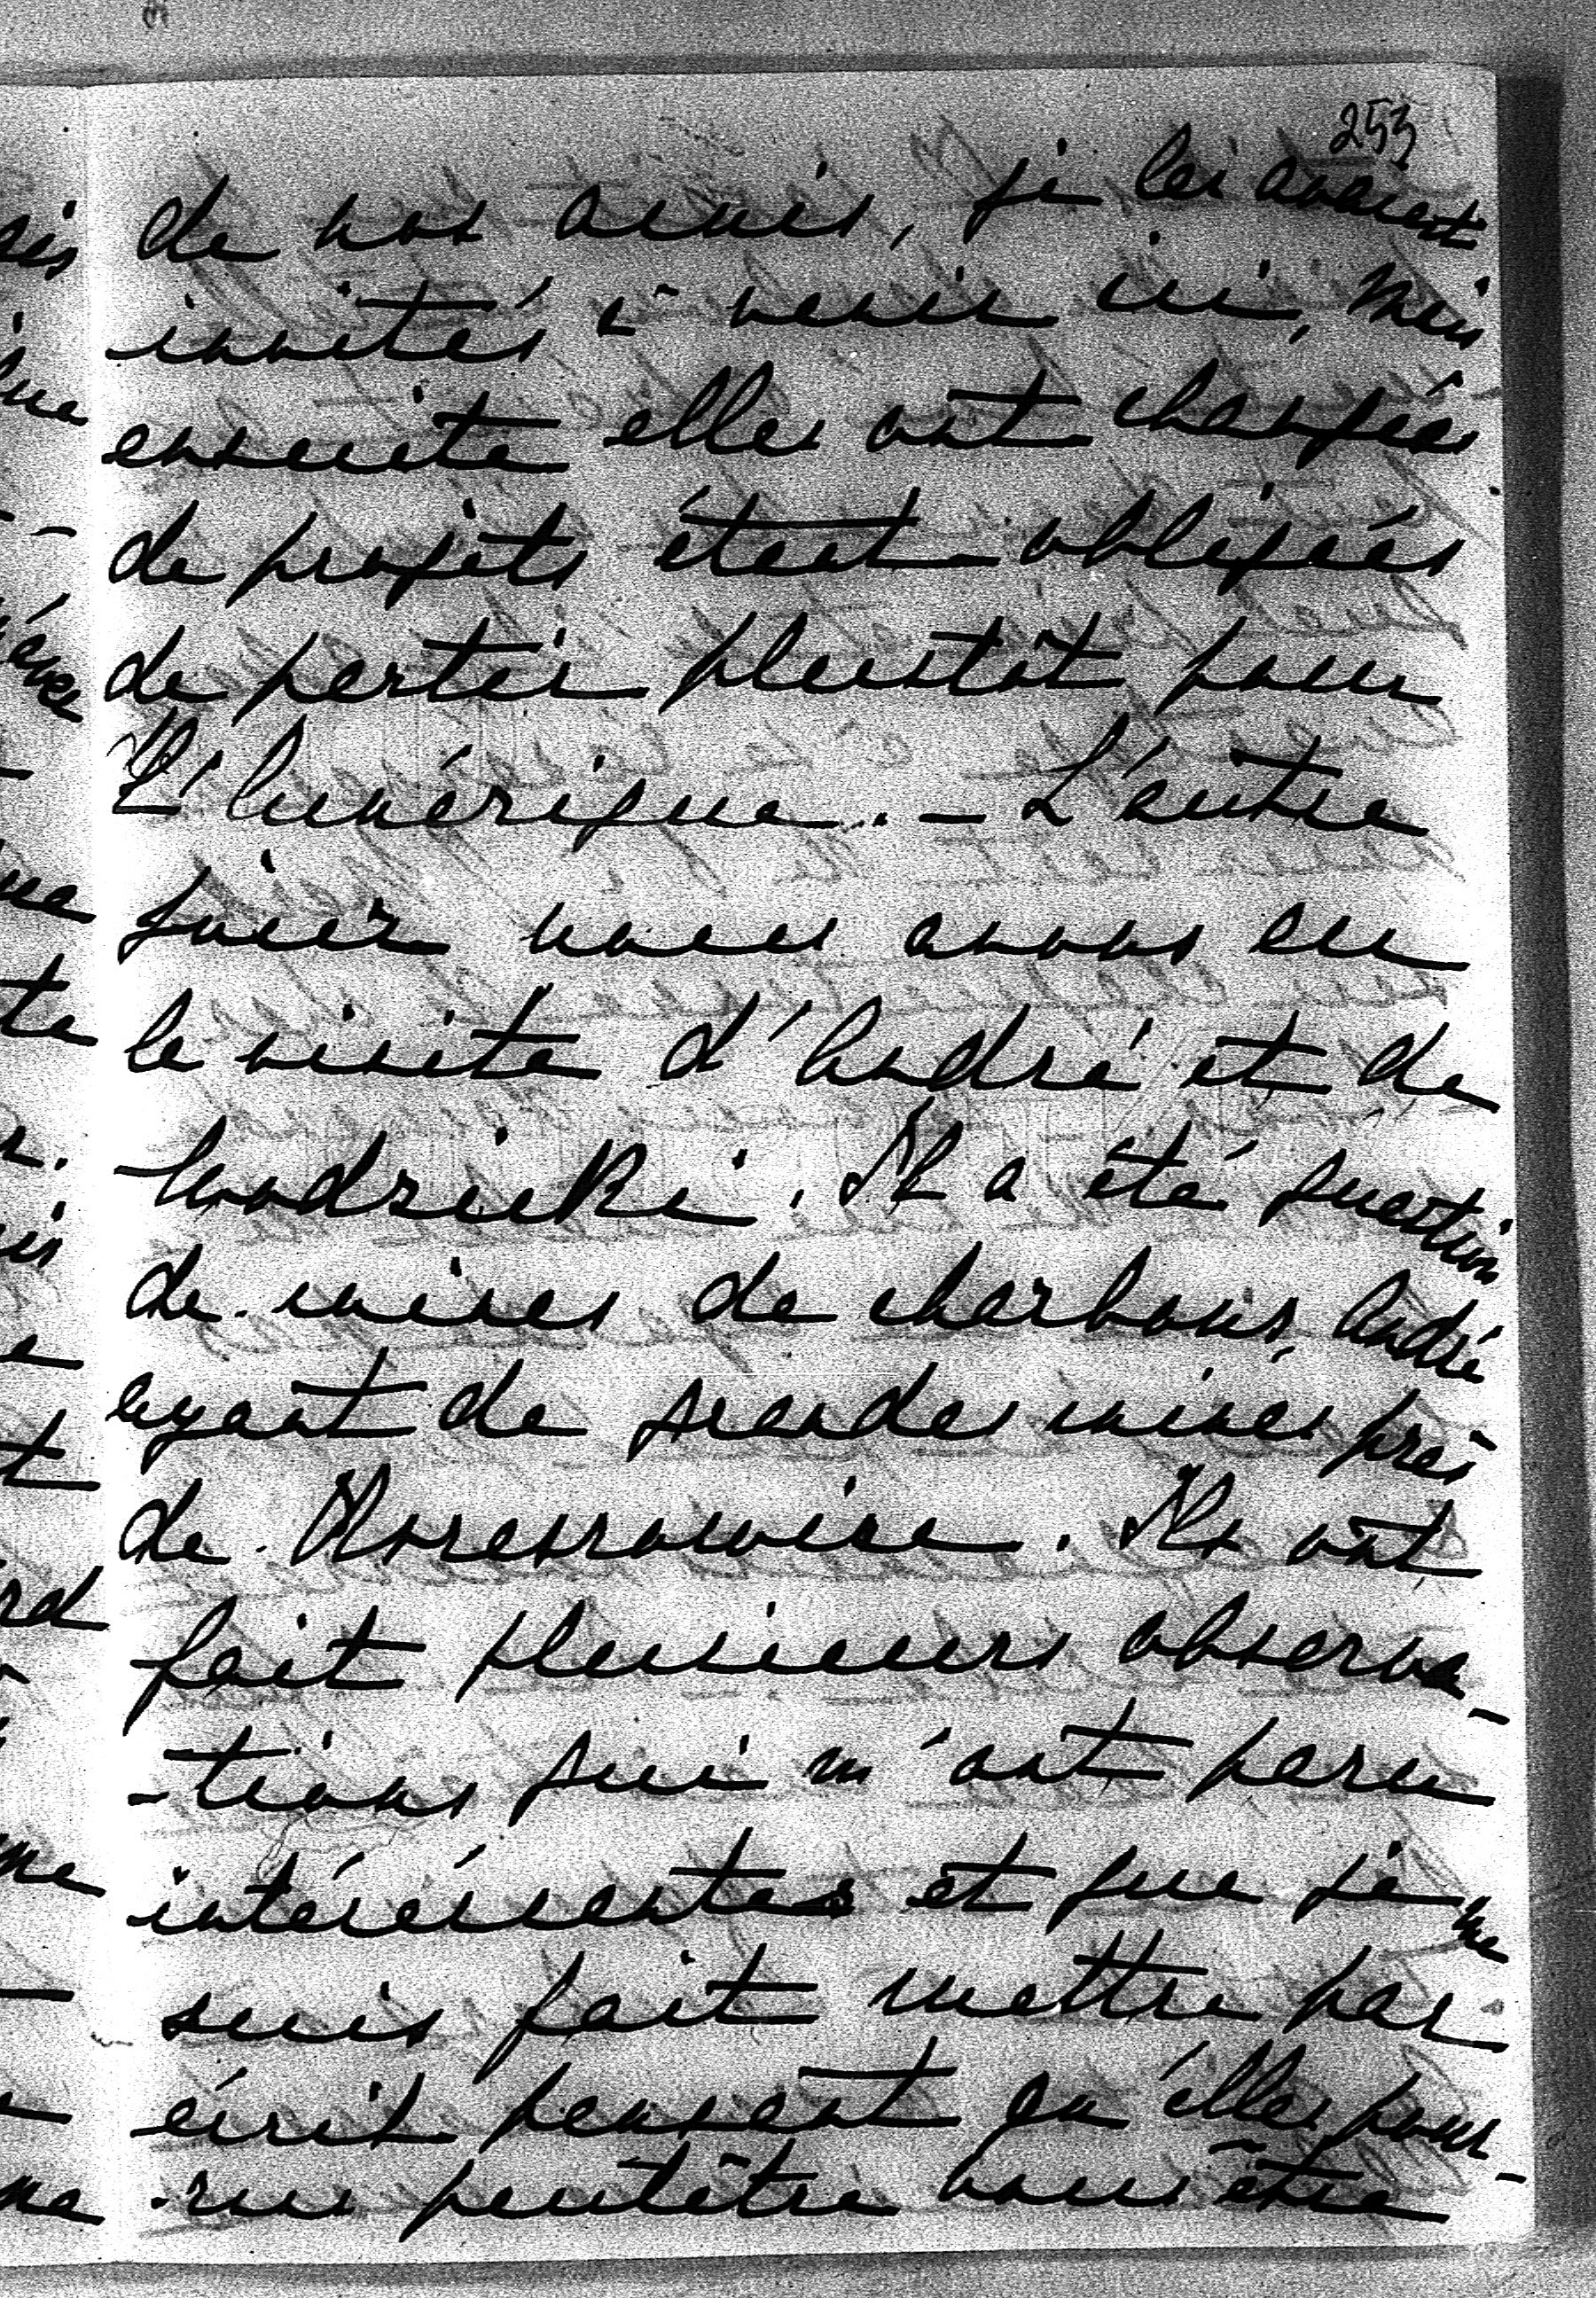 253
de nos amis, je les avais
invités à venir ici, mais
ensuite elles ont changées
de projets étant obligées
de partir plustôt pour
L'Amérique. – L'autre
jour nous avons eu
la visite d'André et de
Wodzicki. Il a été question
de mines de charbons, André
ayant de grandes mines près
de . Ils ont
fait plusieurs observa-
-tions qui m'ont paru
intéréssantes et que je me
suis fait mettre par
écrit pensant qu'elles pour-
-rons peutêtre vous être